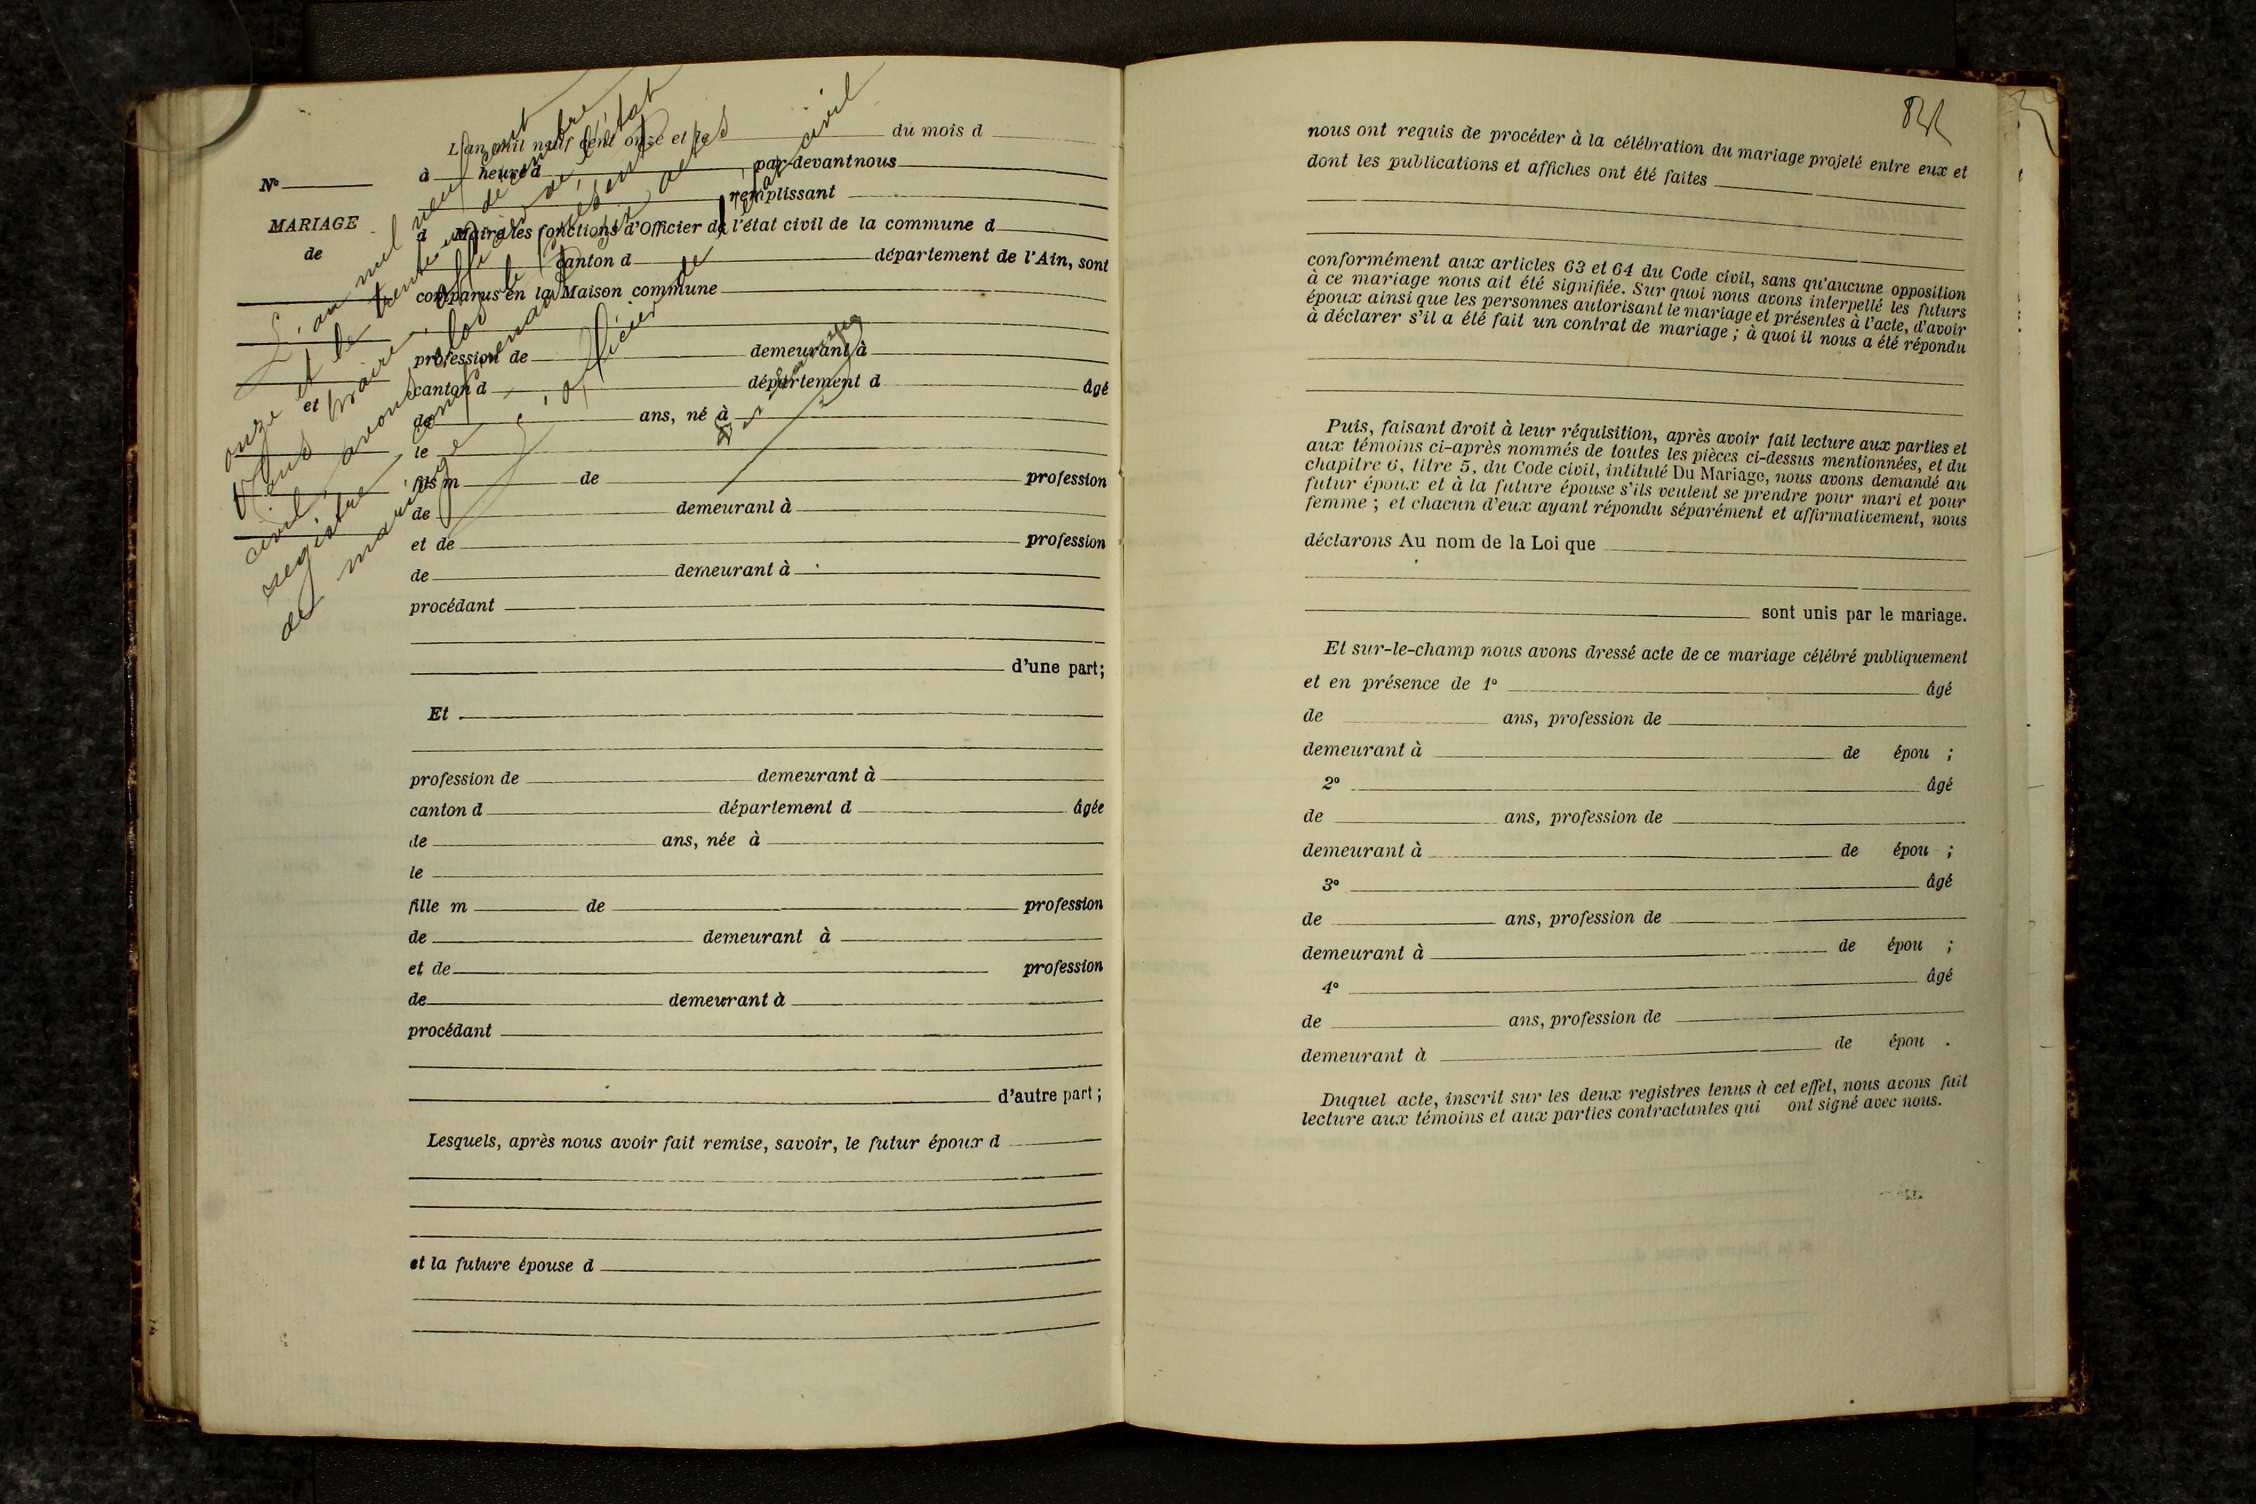 L'an mil neuf cent
onze et le trente un décembre
Nous maire, officier de l'état
civil, avons clos le présent
registre conformément aux actes
de mariage
L'officier de l'état civil
N°
MARIAGE
de
et
L'an mil neuf cent onze et le du mois d
à heure d par-devant nous
remplissant
d Maire les fonctions d'Officier de l'état civil de la commune d
canton d département de l'Ain, sont
comparus en la Maison commune
profession de demeurant à
canton d département d âgé
de ans, né à
le
fils m de profession
de demeurant à
et de profession
de demeurant à
procédant
d'une part;
Et
profession de demeurant à
canton d département d âgée
de ans, née à
le
fille m de profession
de demeurant à
et de profession
de demeurant à
procédant
d'autre part;
Lesquels, après nous avoir fait remise, savoir, le futur époux d
et la future épouse d
nous ont requis de procéder à la célébration du mariage projeté entre eux et
dont les publications et affiches ont été faites
conformément aux articles 63 et 64 du Code civil, sans qu'aucune opposition
à ce mariage nous ait été signifiée. Sur quoi nous avons interpellé les futurs
époux ainsi que les personnes autorisant le mariage et présentes à l'acte, d'avoir
à déclarer s'il a été fait un contrat de mariage; à quoi il nous a été répondu
Puis, faisant droit à leur réquisition, après avoir fait lecture aux parties et
aux témoins ci-après nommés de toutes les pièces ci-dessus mentionnées, et du
chapitre 6, titre 5, du Code civil, intitulé Du Mariage, nous avons demandé au
futur époux et à la future épouse s'ils veulent se prendre pour mari et pour
femme; et chacun d'eux ayant répondu séparément et affirmativement, nous
déclarons Au nom de la Loi que
sont unis par le mariage.
Et sur-le-champ nous avons dressé acte de ce mariage célébré publiquement
et en présence de 1° âgé
de ans, profession de
demeurant à de épou ;
2° âgé
de ans, profession de
demeurant à de épou ;
3° âgé
de ans, profession de
demeurant à de épou ;
4° âgé
de ans, profession de
demeurant à de épou .
Duquel acte, inscrit sur les deux registres tenus à cet effet, nous avons fait
lecture aux témoins et aux parties contractantes qui ont signé avec nous.